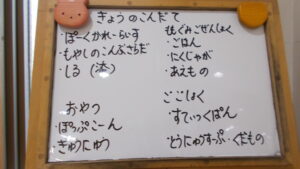 きょうのこんだて
・ぽーくかれーらいす
・もやしのこんぶさらだ
・しる(添)
おやつ
・ぽっぷこーん
・ぎゅうにゅう
もぐみごぜんしょく
・ごはん
・にくじゃが
・あえもの
ごごしょく
・すてぃっくぱん
・とうにゅうすーぷ・くだもの